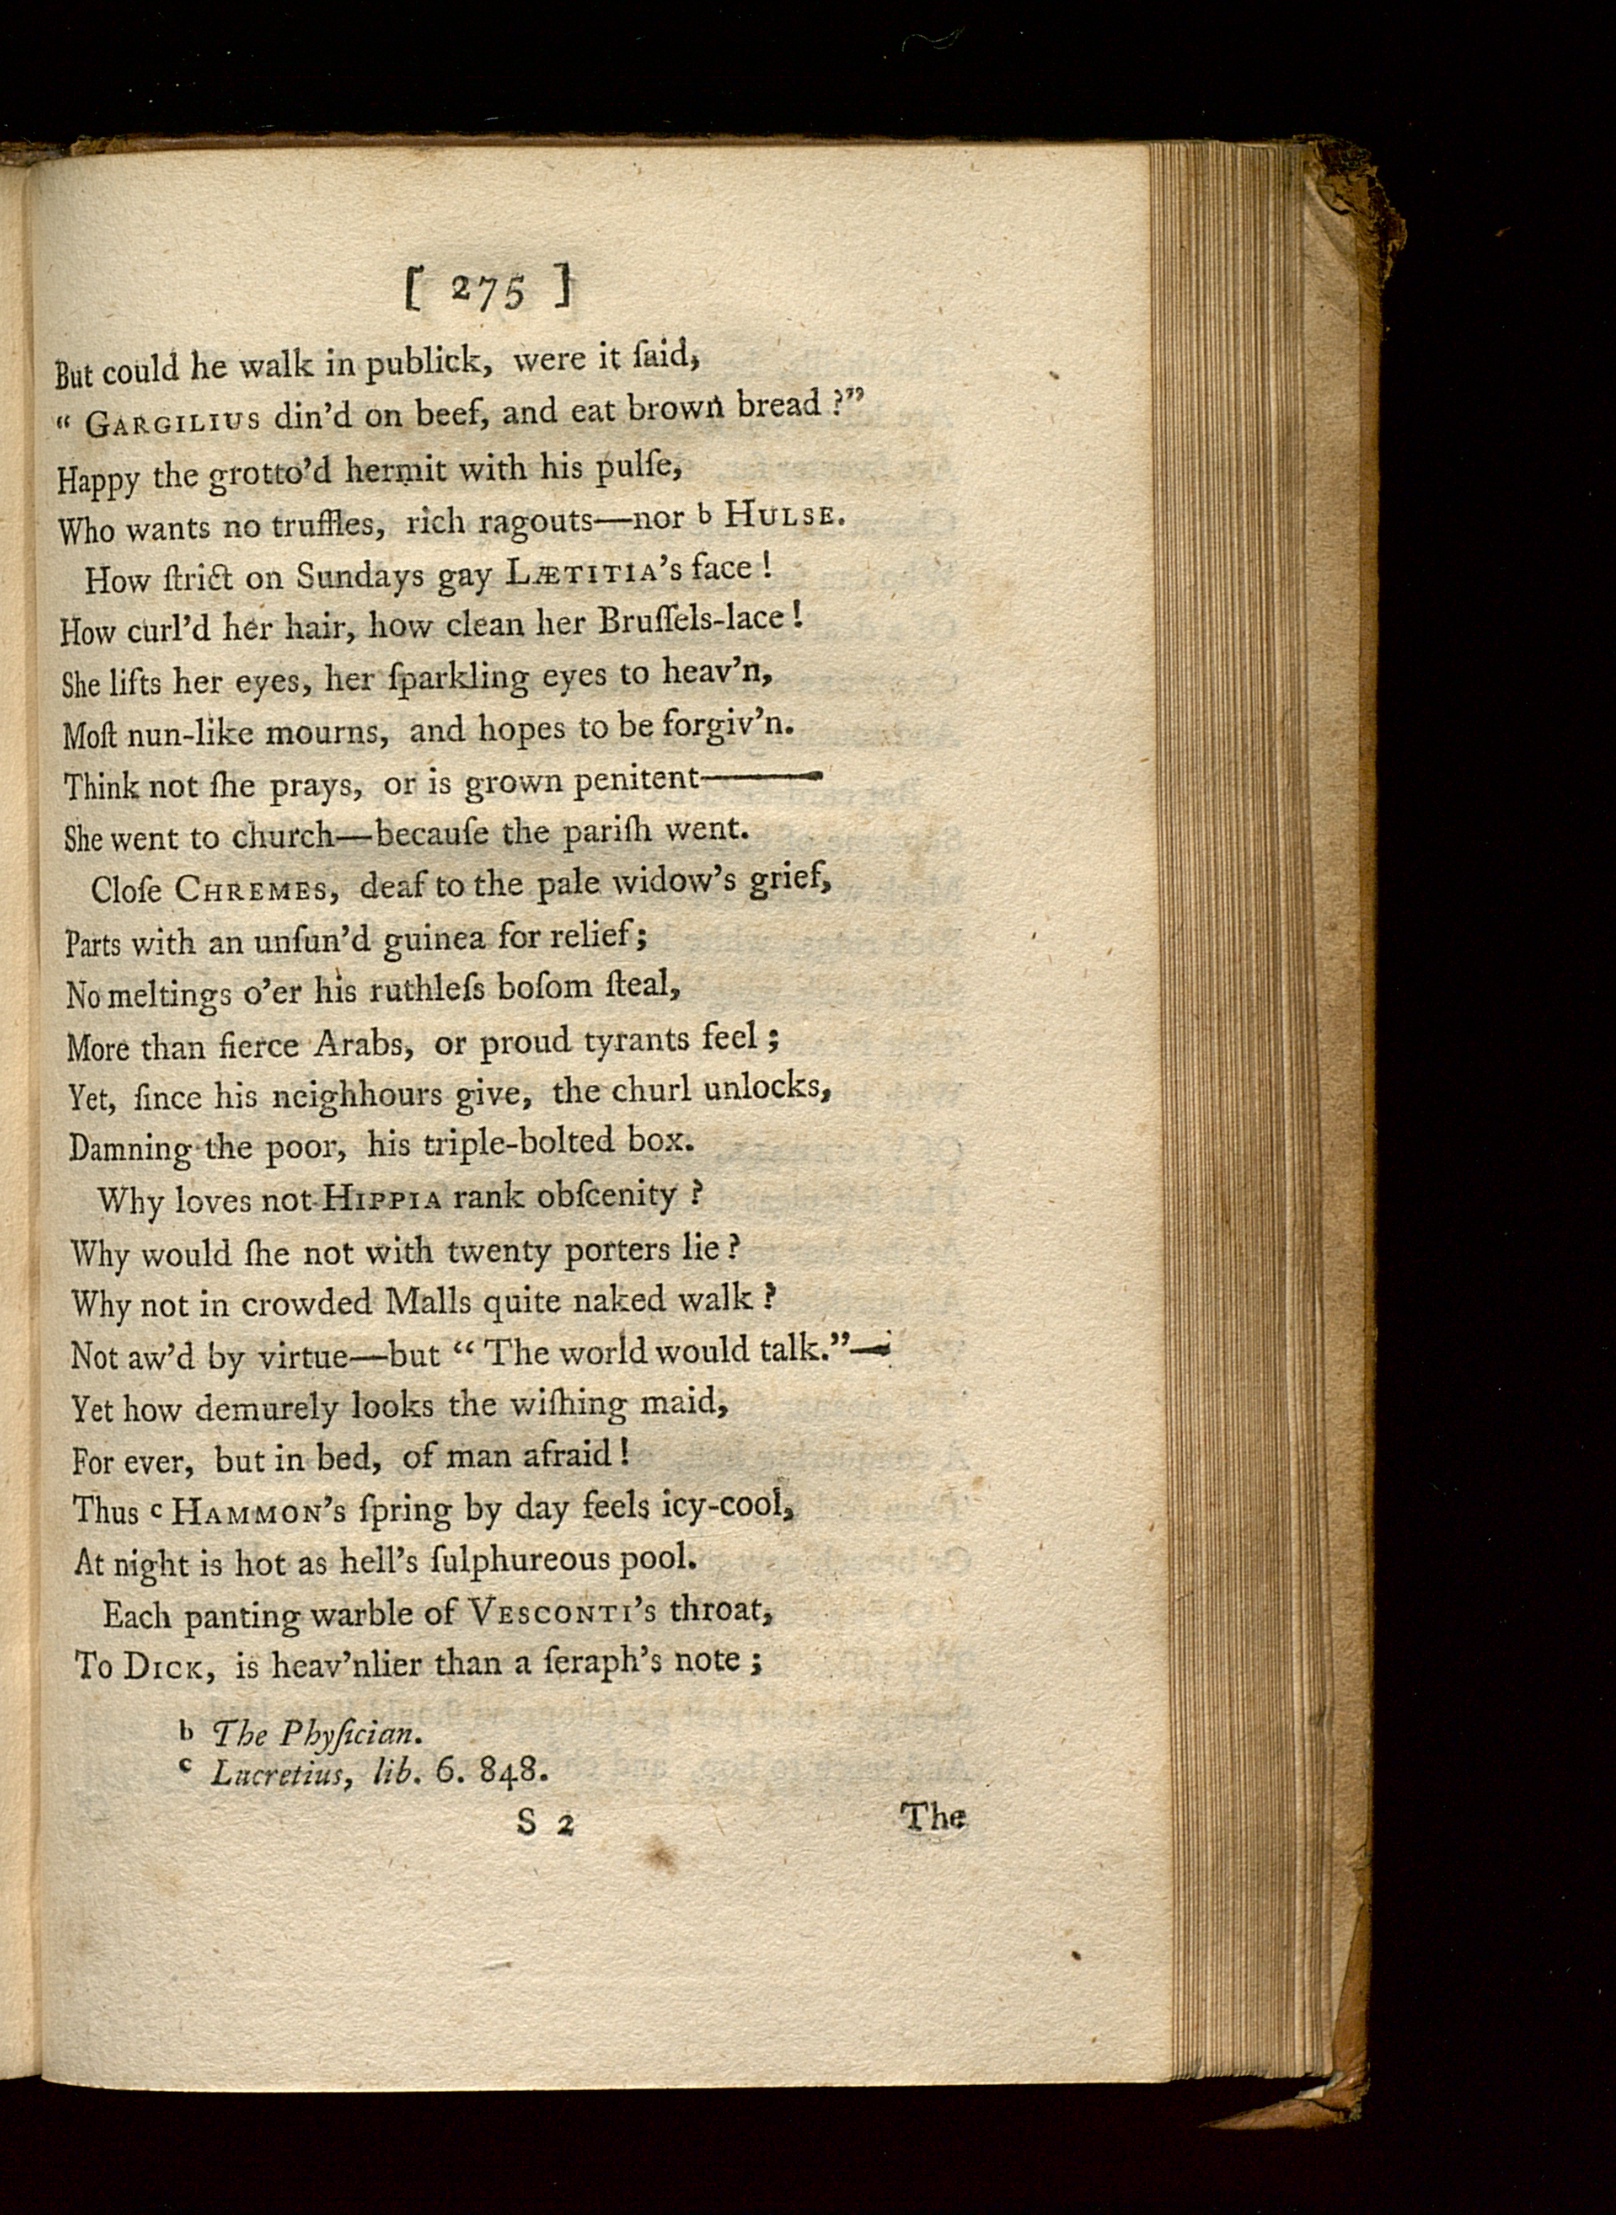 [ 275 ]
But could he walk in publick, were it ſaid,
“ GARGILIUS din’d on beef, and eat brown bread ?”
Happy the grotto’d hermit with his pulſe,
Who wants no truffles, rich ragouts—nor b HULSE.
How ſtrict on Sundays gay LÆTITIA’s face !
How curl’d her hair, how clean her Bruſſels-lace !
She lifts her eyes, her ſparkling eyes to heav’n,
Moſt nun-like mourns, and hopes to be forgiv’n.
Think not ſhe prays, or is grown penitent———
She went to church—becauſe the pariſh went.
Cloſe CHREMES, deaf to the pale widow’s grief,
Parts with an unſun’d guinea for relief ;
No meltings o’er his ruthleſs boſom ſteal,
More than fierce Arabs, or proud tyrants feel ;
Yet, ſince his neighhours give, the churl unlocks,
Damning the poor, his triple-bolted box.
Why loves not HIPPIA rank obſcenity ?
Why would ſhe not with twenty porters lie ?
Why not in crowded Malls quite naked walk ?
Not aw’d by virtue—but “ The world would talk.”—
Yet how demurely looks the wiſhing maid,
For ever, but in bed, of man afraid !
Thus c HAMMON’s ſpring by day feels icy-cool,
At night is hot as hell’s ſulphureous pool.
Each panting warble of VESCONTI’s throat,
To DICK, is heav’nlier than a ſeraph’s note ;
b The Phyſician.
c Lucretius, lib. 6. 848.
S 2 The